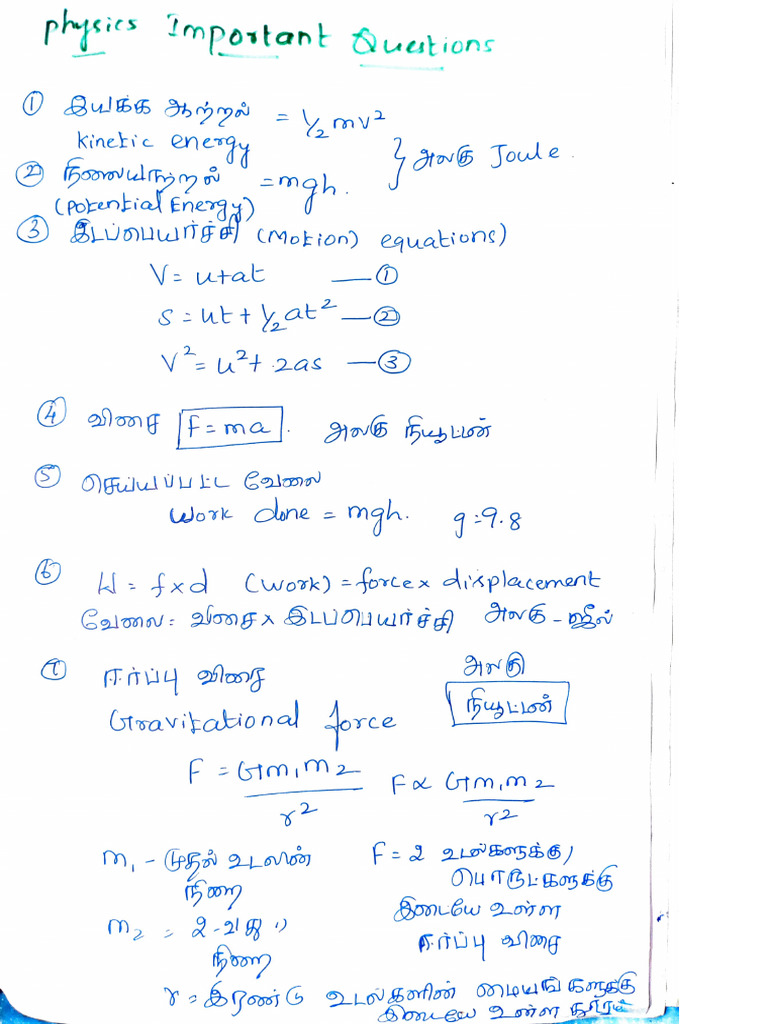 Physics Important Questions
① இயக்க ஆற்றல் = 1/2 mv²
kinetic energy
} அலகு Joule.
② நிலையாற்றல் = mgh.
(Potential Energy)
③ இடப்பெயர்ச்சி (Motion) equations)
V = u+at —①
S = ut + 1/2 at² —②
V² = u² + 2as —③
④ விசை F = ma. அலகு நியூட்டன்
⑤ செய்யப்பட்ட வேலை
Work done = mgh. g = 9.8
⑥ W = f x d (Work) = force x displacement
வேலை = விசை x இடப்பெயர்ச்சி அலகு - ஜீல்
⑦ ஈர்ப்பு விசை அலகு
Gravitational force நியூட்டன்
F = Gm₁m₂/r² F ∝ Gm₁m₂/r²
m₁ - முதல் உடலின் நிறை
m₂ = 2-வது '' நிறை
F = 2 உடல்களுக்கு/
பொருட்களுக்கு
இடையே உள்ள
ஈர்ப்பு விசை
r = இரண்டு உடல்களின் மையங்களுக்கு
இடையே உள்ள தூரம்